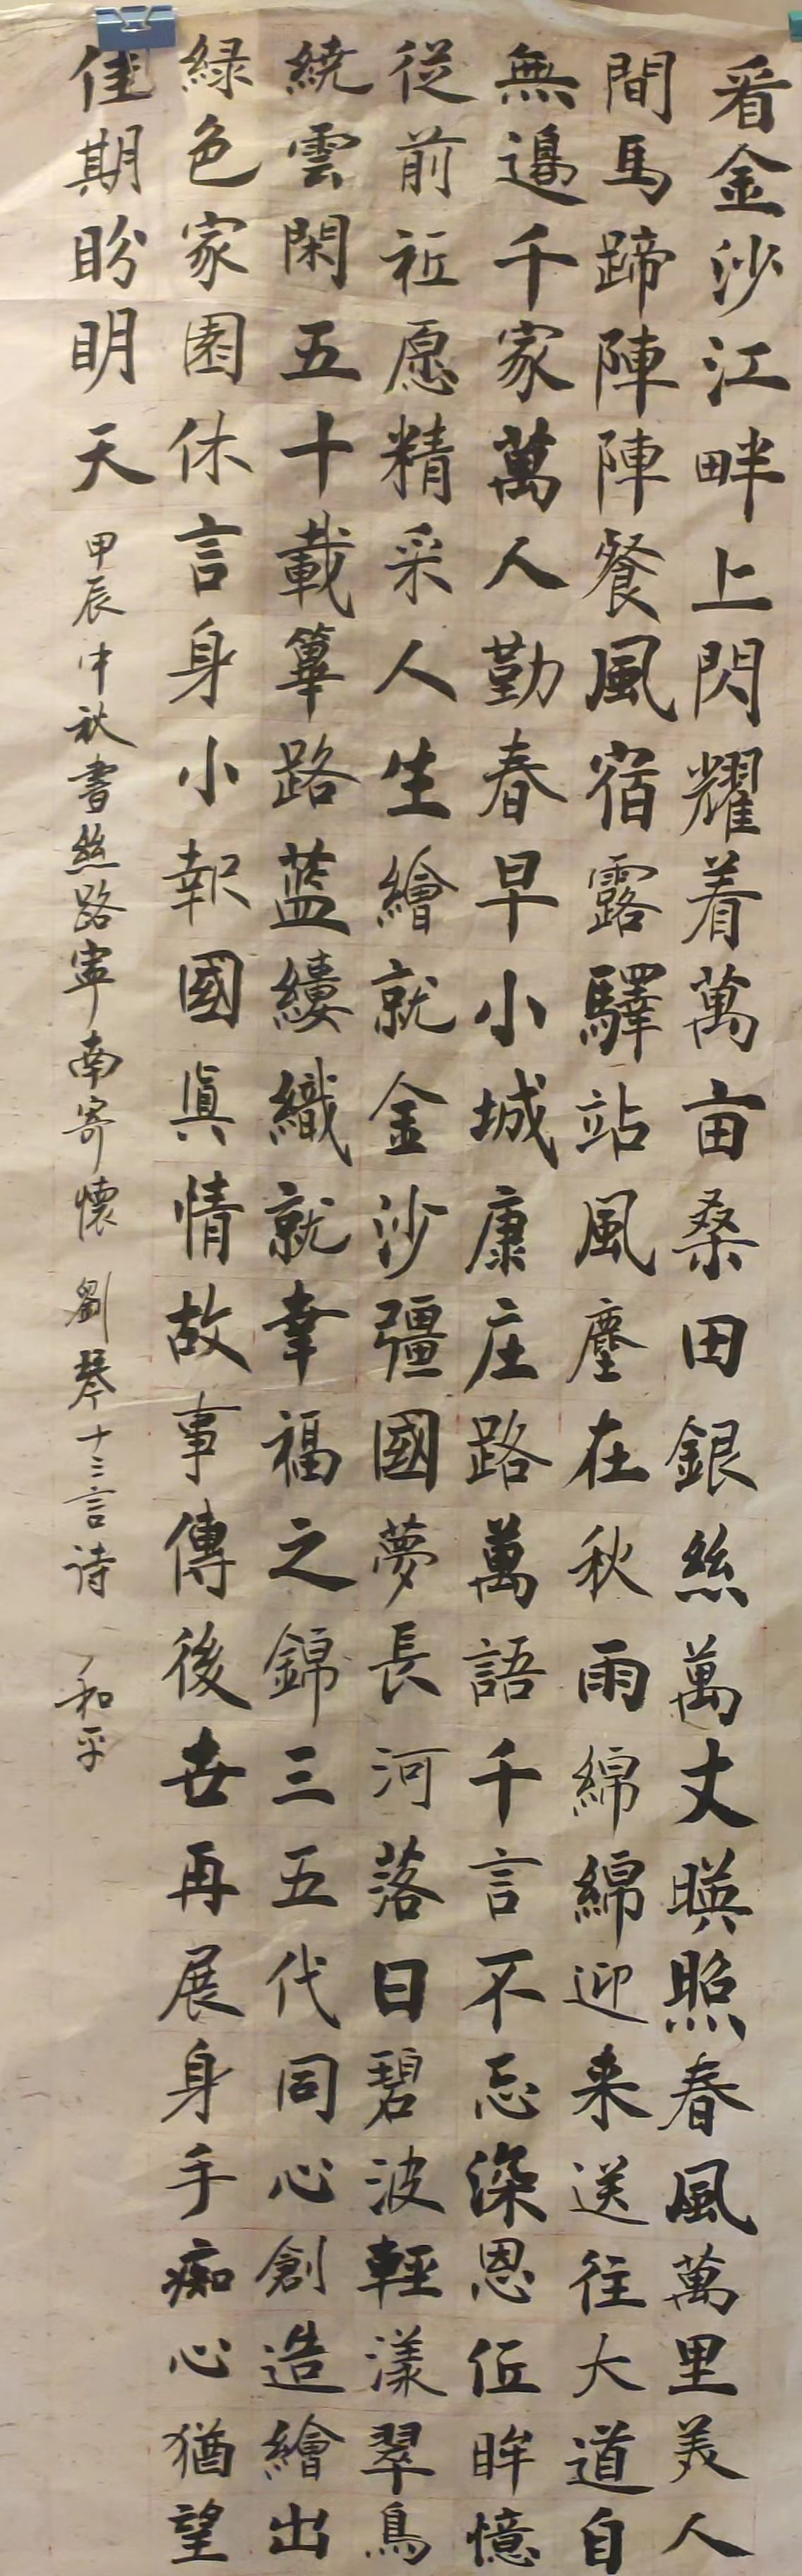 看金沙江畔上閃耀着萬亩桑田銀絲萬丈暎照春風萬里美人
間馬蹄陣陣餐風宿露驛站風塵在秋雨綿綿迎来送往大道自
無邊千家萬人勤春早小城康庄路萬語千言不忘深恩低眸憶
從前祗愿精采人生繪就金沙疆國夢長河落日碧波輕漾翠鳥
繞雲閑五十載篳路藍縷織就幸福之錦三五代同心創造繪出
緑色家園休言身小報國真情故事傳後世再展身手痴心猶望
佳期盼明天
甲辰中秋書絲路寧南寄懷 劉琴十三言诗 和平